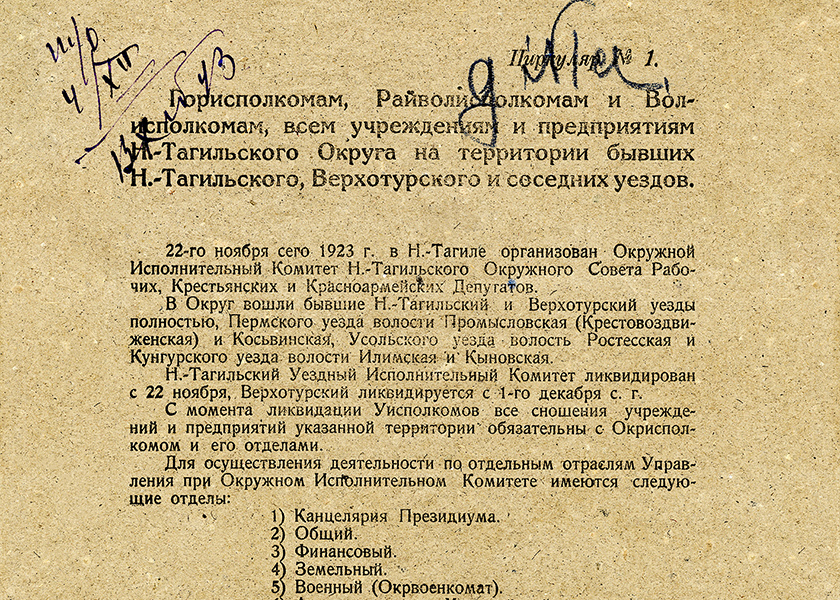 Циркуляр № 1.
Горисполкомам, Райволисполкомам и Вол-
исполкомам, всем учреждениям и предприятиям
Н.-Тагильского Округа на территории бывших
Н.-Тагильского, Верхотурского и соседних уездов.
22-го ноября сего 1923 г. в Н.-Тагиле организован Окружной
Исполнительный Комитет Н.-Тагильского Окружного Совета Рабо-
чих, Крестьянских и Красноармейских Депутатов.
В Округ вошли бывшие Н.-Тагильский и Верхотурский уезды
полностью, Пермского уезда волости Промысловская (Крестовоздви-
женская) и Косьвинская, Усольского уезда волость Ростесская и
Кунгурского уезда волости Илимская и Кыновская.
Н.-Тагильский Уездный Исполнительный Комитет ликвидирован
с 22 ноября, Верхотурский ликвидируется с 1-го декабря с. г.
С момента ликвидации Уисполкомов все сношения учрежде-
ний и предприятий указанной территории обязательны с Окриспол-
комом и его отделами.
Для осуществления деятельности по отдельным отраслям Управ-
ления при Окружном Исполнительном Комитете имеются следую-
щие отделы:
1) Канцелярия Президиума.
2) Общий.
3) Финансовый.
4) Земельный.
5) Военный (Окрвоенкомат).